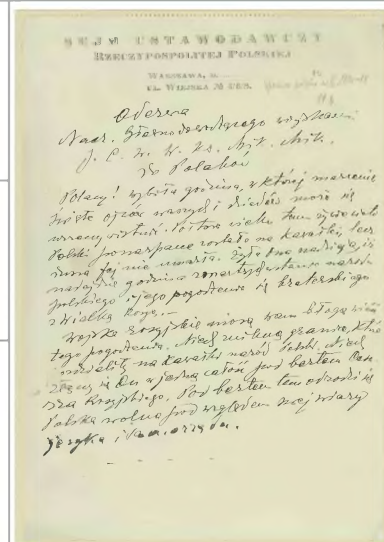 SEJM USTAWODAWCZY
RZECZYPOSPOLITEJ POLSKIEJ
WARSZAWA, D.
UL. WIEJSKA № 6/8.
Odezwa
Nacz. Głównodowodzącego wojskami
J. C. W. W. Ks. Mik. Mik.
do Polaków
Polacy! wybiła godzina, w której marzenie
święte ojców waszych i dziadów może się
urzeczywistnić. Półtora wieku temu żywe ciało
Polski poszarpane zostało na kawałki, lecz
dusza jej nie umarła. Żyła ona nadzieją, iż
nadejdzie godzina zmartwychwstania narodu
polskiego i jego pogodzenia się braterskiego
z Wielką Rosją.
Wojsko rosyjskie niosą wam błogą wieść
tego pogodzenia. Niech znikną granice, które
na kawałki naród Polski. Niech
złączy się On w jedną całość pod berłem Cesa-
rza Rosyjskiego. Pod berłem tem odrodzi się
Polska wolna pod względem swej wiary
języka i samorządu.